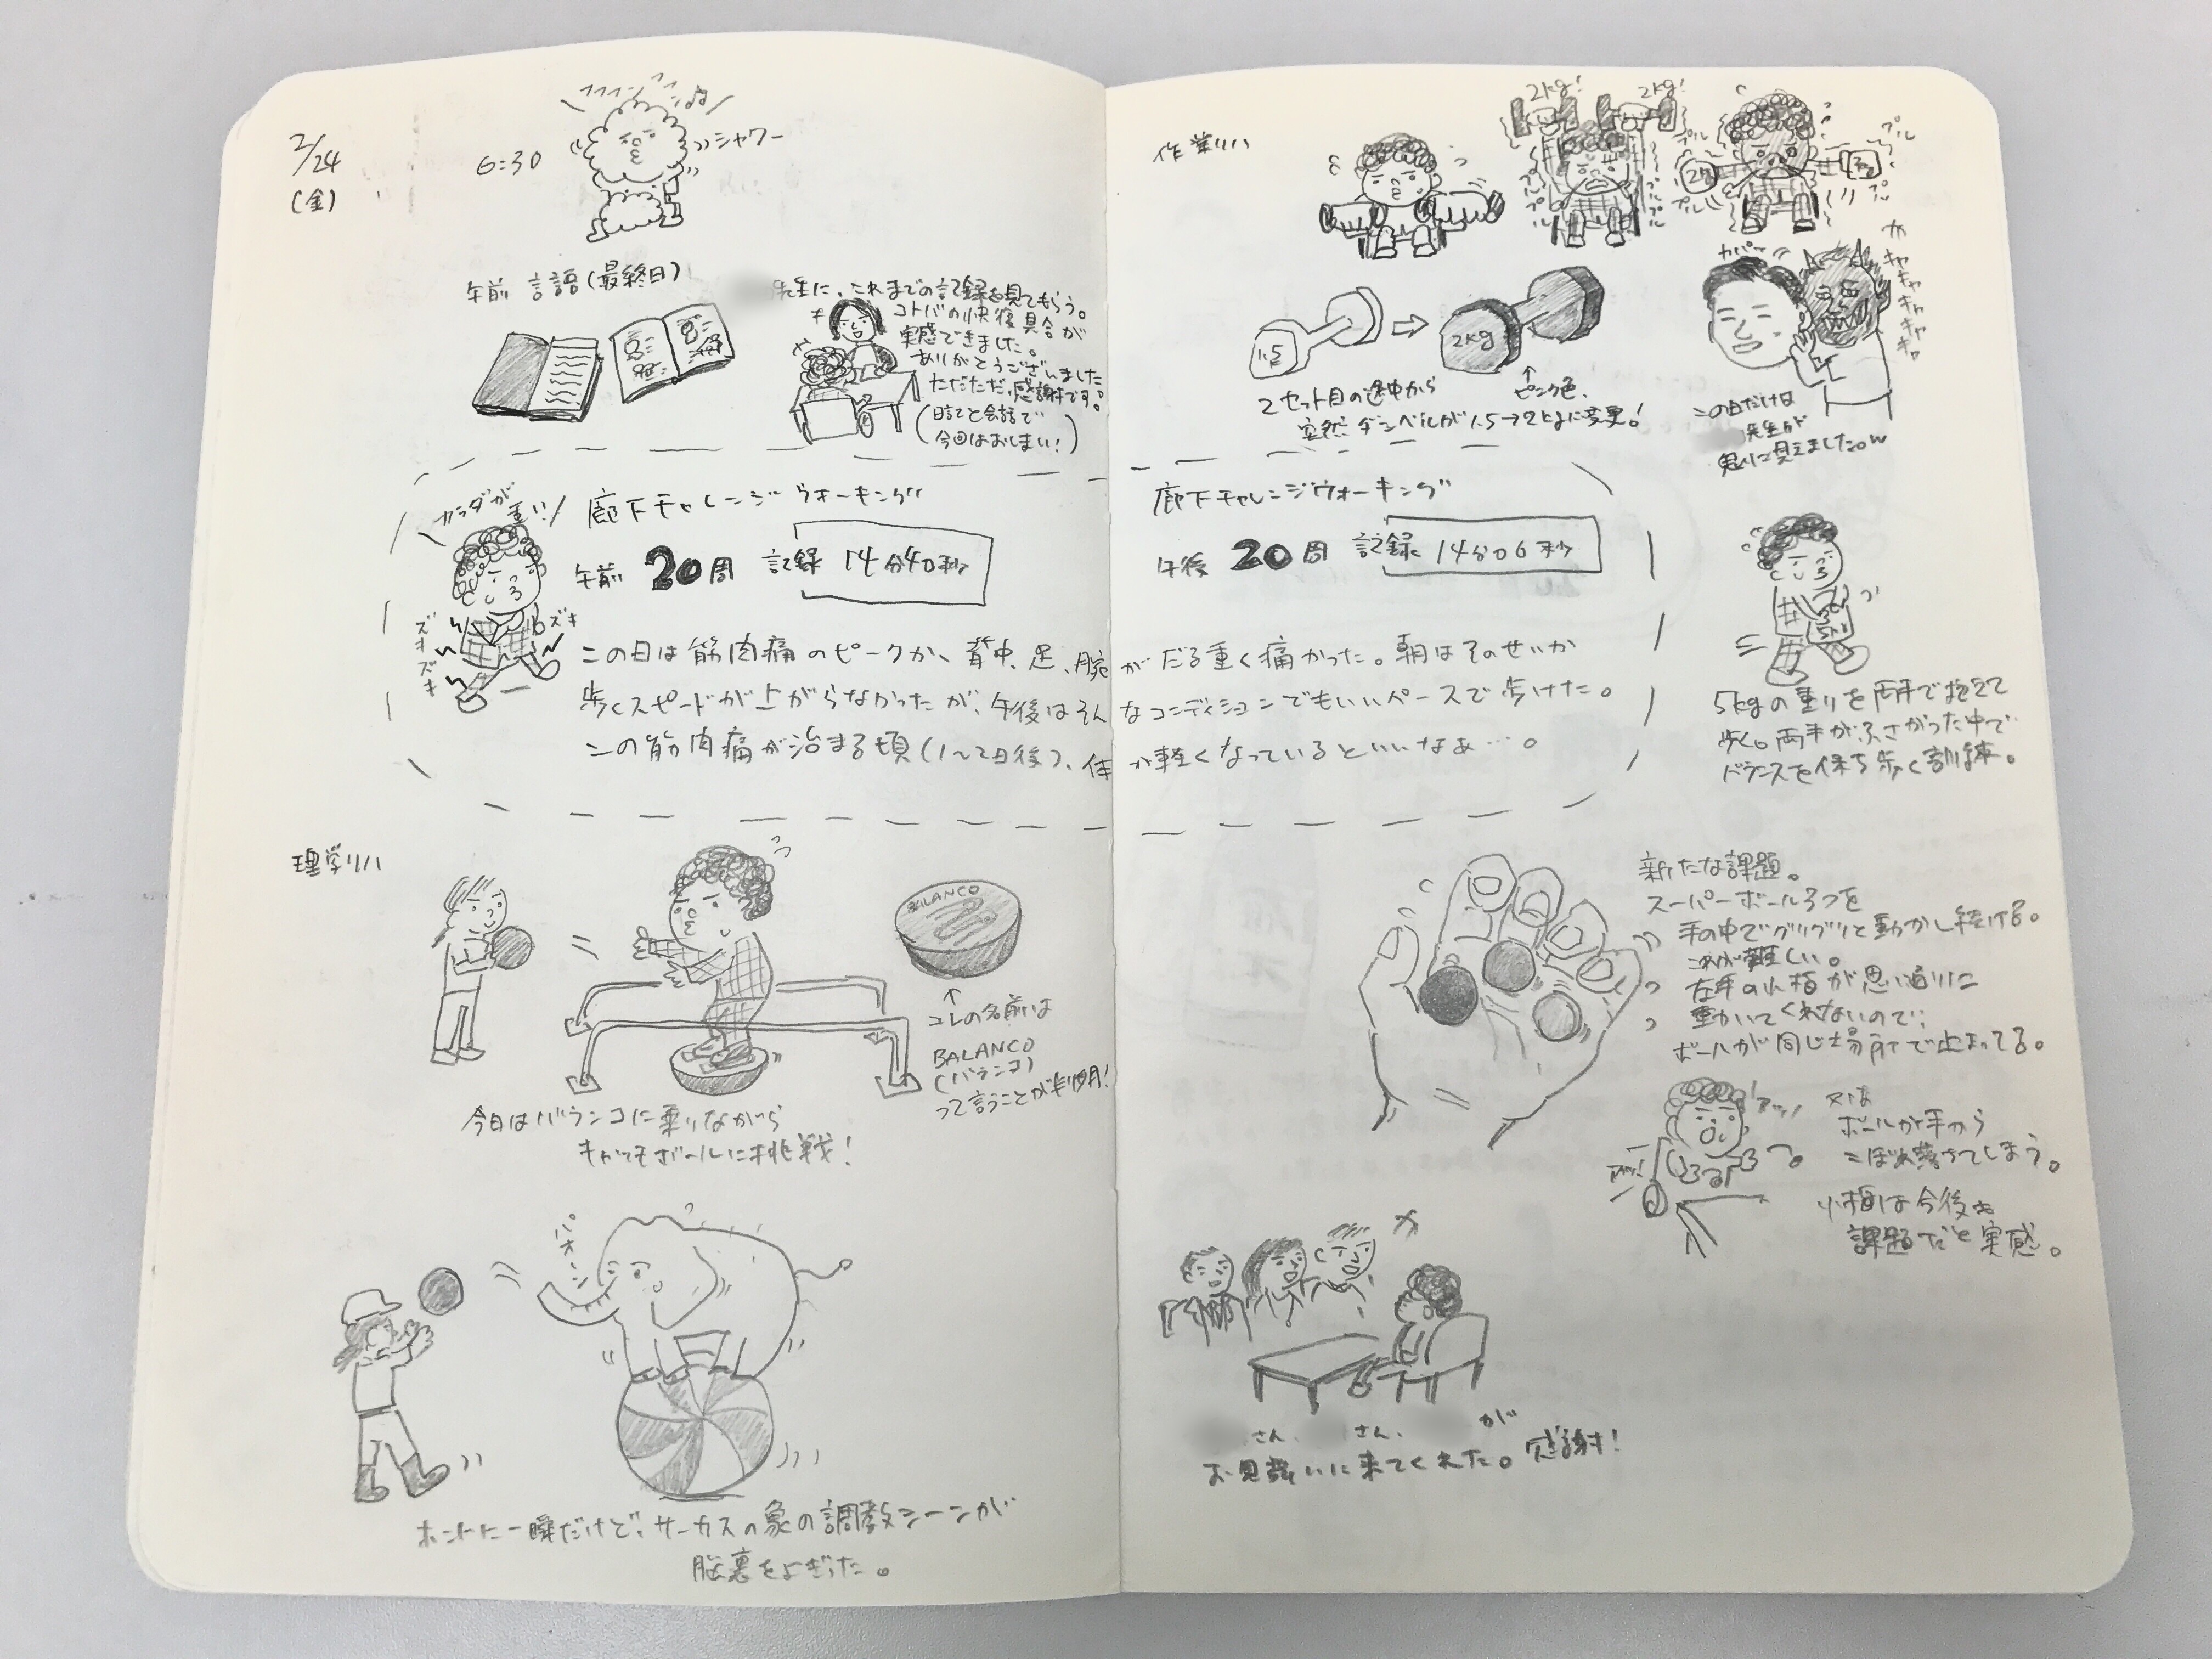 2/24
(金)
6:30
フフフンフン♫
シャワー
午前 言語(最終日)
先生に、これまでの記録を見てもらう。
コトバの快復具合が
実感できました。
ありがとうございました。
ただただ、感謝です。
(日記と会話で
今回はおしまい!)
カラダが
重い!
ズキ
ズキ
ズキ
廊下チャレンジウォーキング
午前 20周 記録 14分40秒
この日は筋肉痛のピークか、背中、足、腕がだる重く痛かった。朝はそのせいか
歩くスピードが上がらなかったが、午後はそんなコンディションでもいいペースで歩けた。
この筋肉痛が治まる頃(1〜2日後)、体が軽くなっているといいなぁ…。
理学リハ
BALANCO
↑
コレの名前は
BALANCO
(バランコ)
って言うことが判明!
今日はバランコに乗りながら
キャッチボールに挑戦!
パオーン
ホントに一瞬だけど、サーカスの象の調教シーンが
脳裏をよぎった。
作業リハ
2kg! 2kg!
プルプル
プルプル
プルプル
プルプル
2kg
1.5 → 2kg
2セット目の途中から
突然ダンベルが1.5→2kgに変更!
↑
ピンク色。
カパー
キャキャキャキャキャ
この日だけは
先生が
鬼に見えました。w
廊下チャレンジウォーキング
午後 20周 記録 14分06秒
5kg
5kgの重りを両手で抱えて
歩く。両手がふさがった中で
バランスを保ち歩く訓練。
新たな課題。
スーパーボール3つを
手の中でグリグリと動かし続ける。
これが難しい。
左手の小指が思い通りに
動いてくれないので、
ボールが同じ場所で止まってる。
アッ!
アッ!
又は
ボールが手から
こぼれ落ちてしまう。
小指は今後も
課題だと実感。
さん、 さん、 が
お見舞いに来てくれた。感謝!